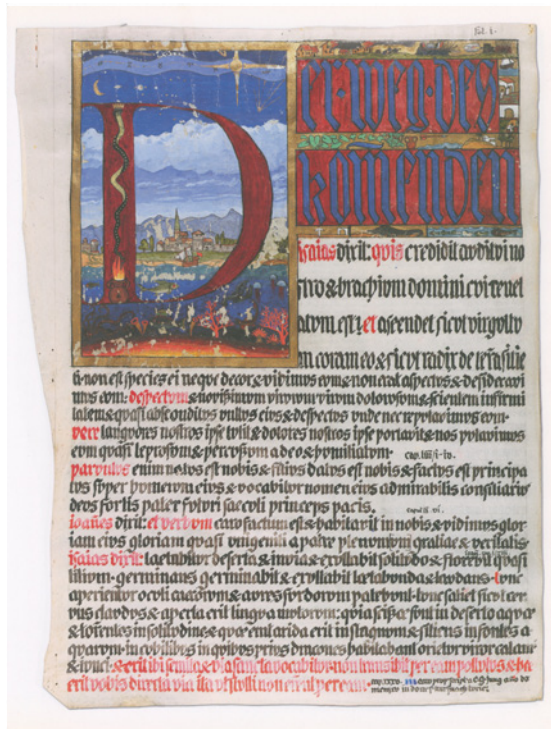 fol. i.
Der weg des
komenden
isaias dixit: qvis credidit avditvi no
stro & brachivm domini cvi revel
atvm est? et ascendet sicvt virgvltv
m coram eo & sicvt radix de terra sitie
ti. non est species ei neqve decor & vidimvs evm & non erat aspectvs & desideravi
mvs evm: despectvm & novissimvm virorvm virvm dolorosvm & scientem infirmi
tatem & qvasi absconditvs vvltvs eivs & despectvs vnde nec repvtavimvs evm.
vere langvores nostros ipse tvlit & dolores nostros ipse portavit & nos pvtavimvs
evm qvasi leprosvm & percvssvm a deo & hvmiliatvm. cap. liii/i-iv.
parvvlvs enim natvs est nobis & filivs datvs est nobis & factvs est principa
tvs svper hvmervm eivs & vocabitvr nomen eivs admirabilis consiliariv
devs fortis pater fvtvri saecvli princeps pacis. capvt ix. vi.
ioanes dixit: et verbvm caro factvm est & habitavit in nobis & vidimvs glor
iam eivs gloriam qvasi vnigeniti a patre plenvm gratiae & veritatis.
isaias dixit: laetabitvr deserta & invia & exvltabit solitvdo & florebit qvasi
lilivm. germinans germinabit & exvltabit laetabvnda & lavdans. tvnc
aperientvr ocvli caecorvm & avres svrdorvm patebvnt. tvnc saliet sicvt cer
vvs clavdvs & aperta erit lingva mvtorvm: qvia scissae svnt in deserto aqvae
& torrentes in solitvdine & qvae erat arida erit in stagnvm & sitiens in fontes a
qvarvm. in cvbilibvs in qvibvs privs dracones habitabant orietvr viror calami
& ivnci. & erit ibi semita & via sancta vocabitvr. non transibit per eam pollvtvs & haec
erit vobis directa via ita vt stvlti non errent per eam. cap. xxxv.